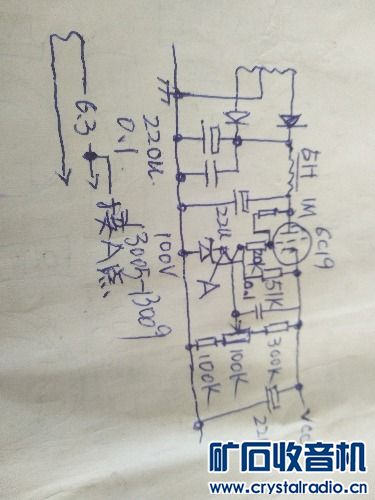 6.3
接A点
220u
0.1
100V
13005-13009
5H
1M
6C19
22u
A
20K
0.1
51K
300K
100K
100K
22
VCC
矿石收音机
www.crystalradio.cn